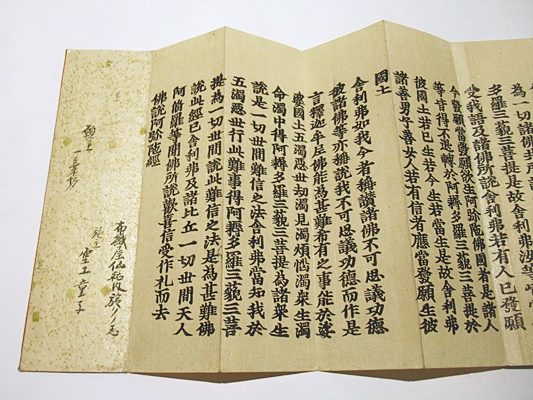 為一切
多羅三藐三菩提是故舍利弗汝等皆當
受我語及諸佛所說舍利弗若有人已發願
今發願當發願欲生阿弥陀佛國者是諸人
等皆得不退轉於阿耨多羅三藐三菩提於
彼國土若已生若今生若當生是故舍利弗
諸善男子善女人若有信者應當發願生彼
國土
舍利弗如我今者稱讚諸佛不可思議功德
彼諸佛等亦稱說我不可思議功德而作是
言釋迦牟尼佛能為甚難希有之事能於娑
婆國土五濁惡世劫濁見濁煩惱濁衆生濁
命濁中得阿耨多羅三藐三菩提為諸衆生
說是一切世間難信之法舍利弗當知我於
五濁惡世行此難事得阿耨多羅三藐三菩
提為一切世間說此難信之法是為甚難佛
說此經已舍利弗及諸比丘一切世間天人
阿脩羅等聞佛所說歡喜信受作礼而去
佛說阿弥陀經
童子
願主